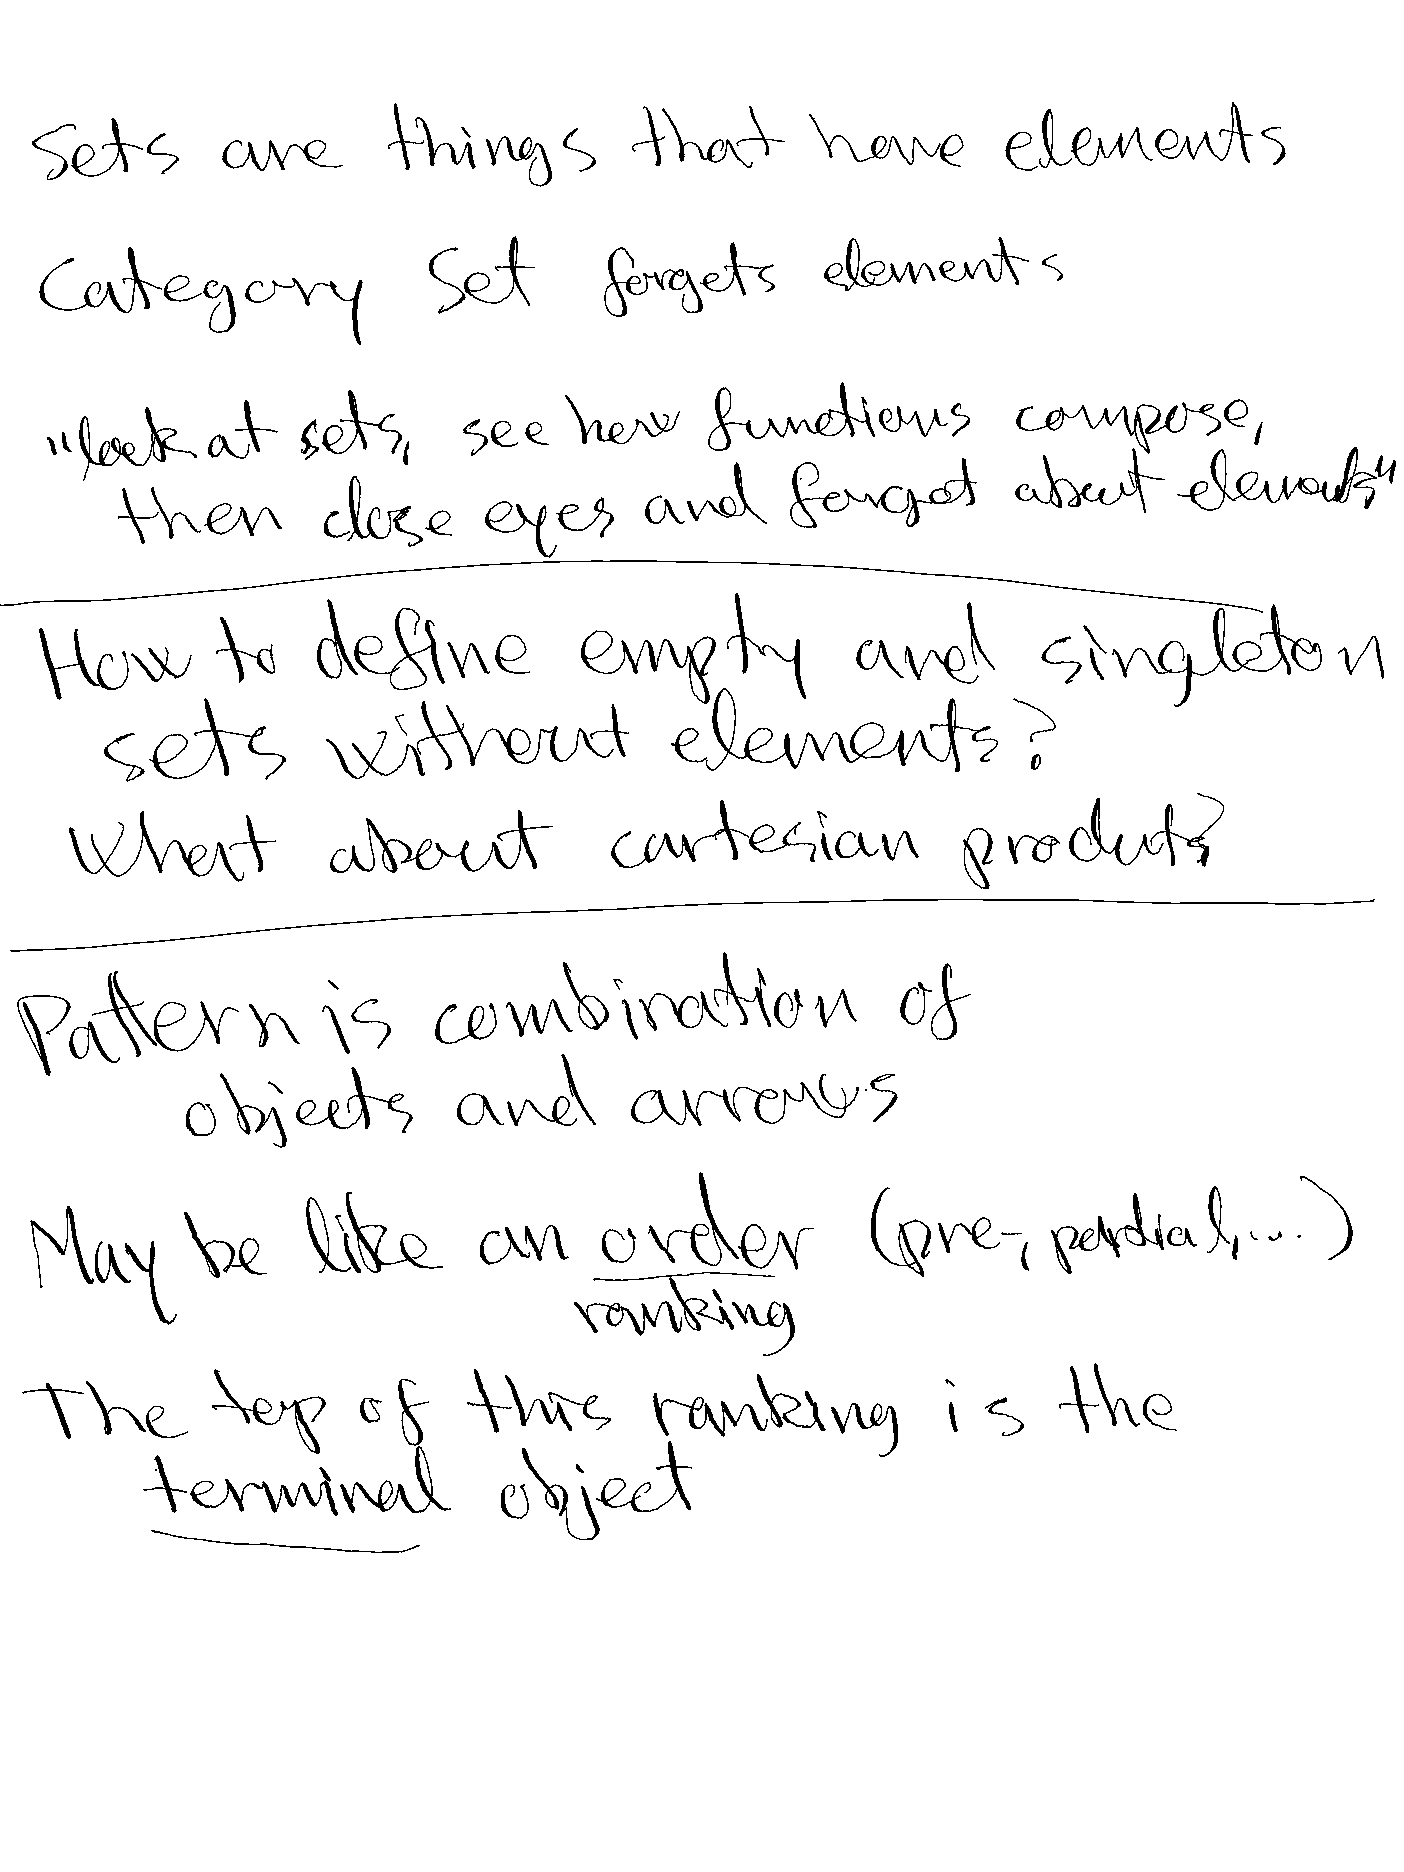 Sets are things that have elements
Category Set forgets elements
"look at sets, see how functions compose,
then close eyes and forget about elements"
How to define empty and singleton
sets without elements?
What about cartesian products?
Pattern is combination of
objects and arrows
May be like an order (pre-, partial, ...)
ranking
The top of this ranking is the
terminal object